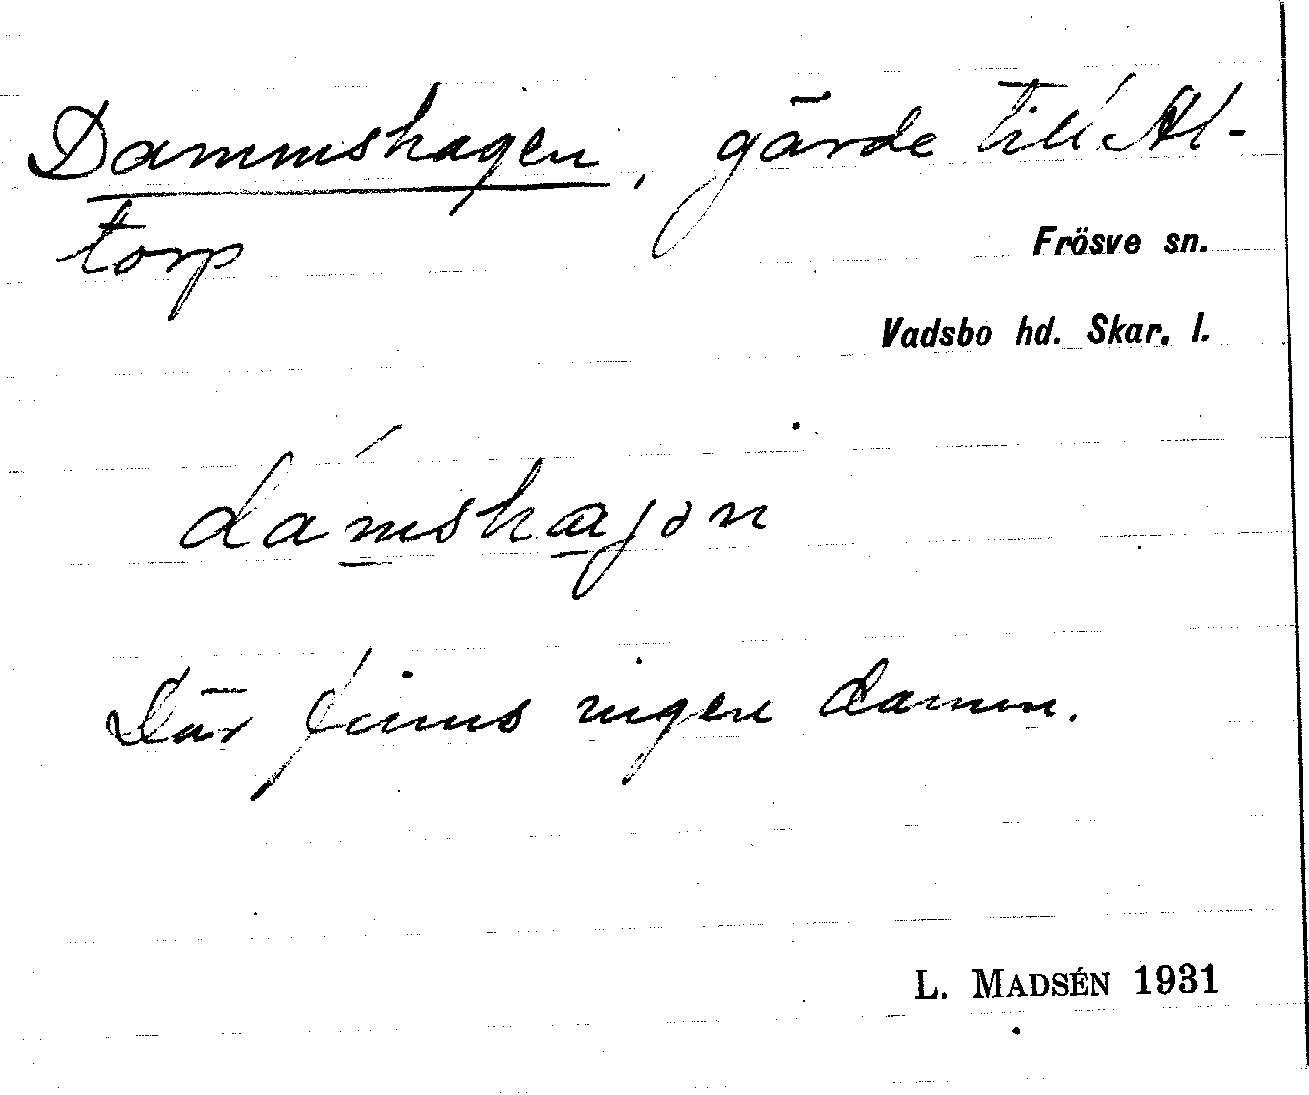 Dammshagen, gärde till Al-
torp
Frösve sn.
Vadsbo hd. Skar. l.
dam̲sha̲jən
Där finns ingen damm.
L. MADSÉN 1931